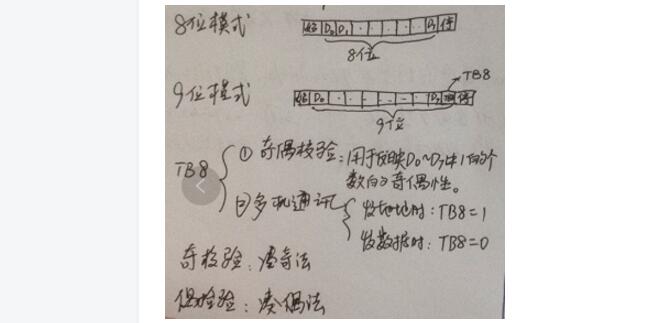 8位模式
始 D₀ D₁ · · · · · D₇ 停
8位
TB8
9位模式
始 D₀ · · - - - · D₇ 停
9位
TB8
① 奇偶校验：用于反映D₀~D₇中1的个
数的奇偶性。
②多机通讯
发地址时：TB8=1
发数据时：TB8=0
奇校验：凑奇法
偶检验：凑偶法